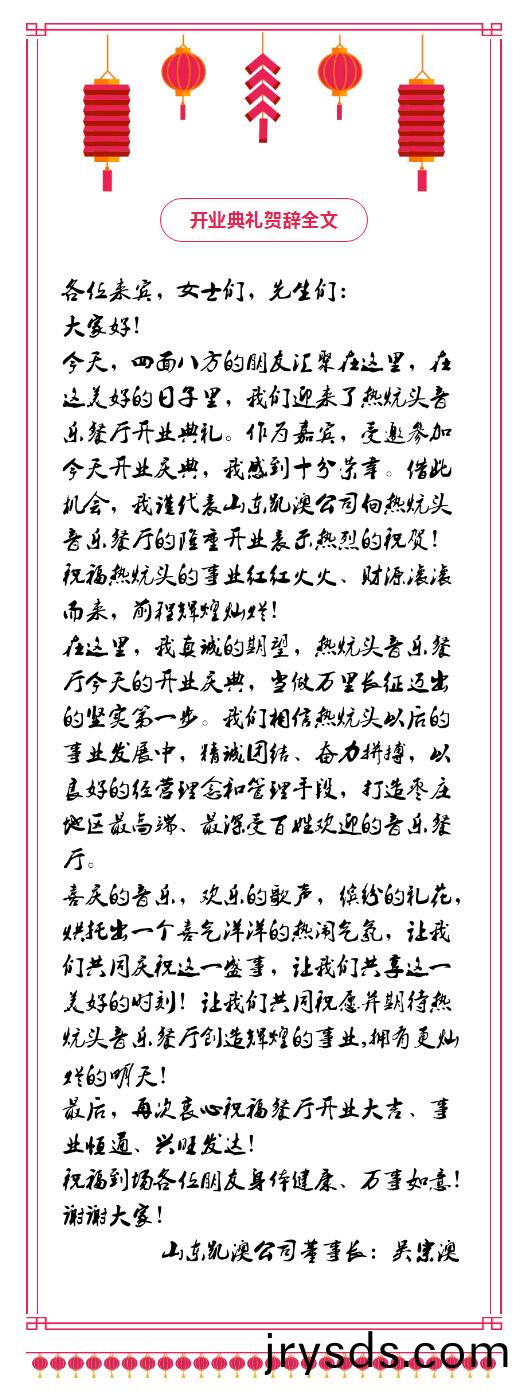 开业典礼贺辞全文
各位来宾，女士们，先生们：
大家好！
今天，四面八方的朋友汇聚在这里，在
这美好的日子里，我们迎来了热炕头音
乐餐厅开业典礼。作为嘉宾，受邀参加
今天开业庆典，我感到十分荣幸。借此
机会，我谨代表山东凯澳公司向热炕头
音乐餐厅的隆重开业表示热烈的祝贺！
祝福热炕头的事业红红火火、财源滚滚
而来，前程辉煌灿烂！
在这里，我真诚的期望，热炕头音乐餐
厅今天的开业庆典，当做万里长征迈出
的坚实第一步。我们相信热炕头以后的
事业发展中，精诚团结、奋力拼搏，以
良好的经营理念和管理手段，打造枣庄
地区最高端、最深受百姓欢迎的音乐餐
厅。
喜庆的音乐，欢乐的歌声，缤纷的礼花，
烘托出一个喜气洋洋的热闹气氛，让我
们共同庆祝这一盛事，让我们共享这一
美好的时刻！让我们共同祝愿并期待热
炕头音乐餐厅创造辉煌的事业,拥有更灿
烂的明天！
最后，再次衷心祝福餐厅开业大吉、事
业恒通、兴旺发达！
祝福到场各位朋友身体健康、万事如意！
谢谢大家！
山东凯澳公司董事长：吴宗澳
jrysds.com